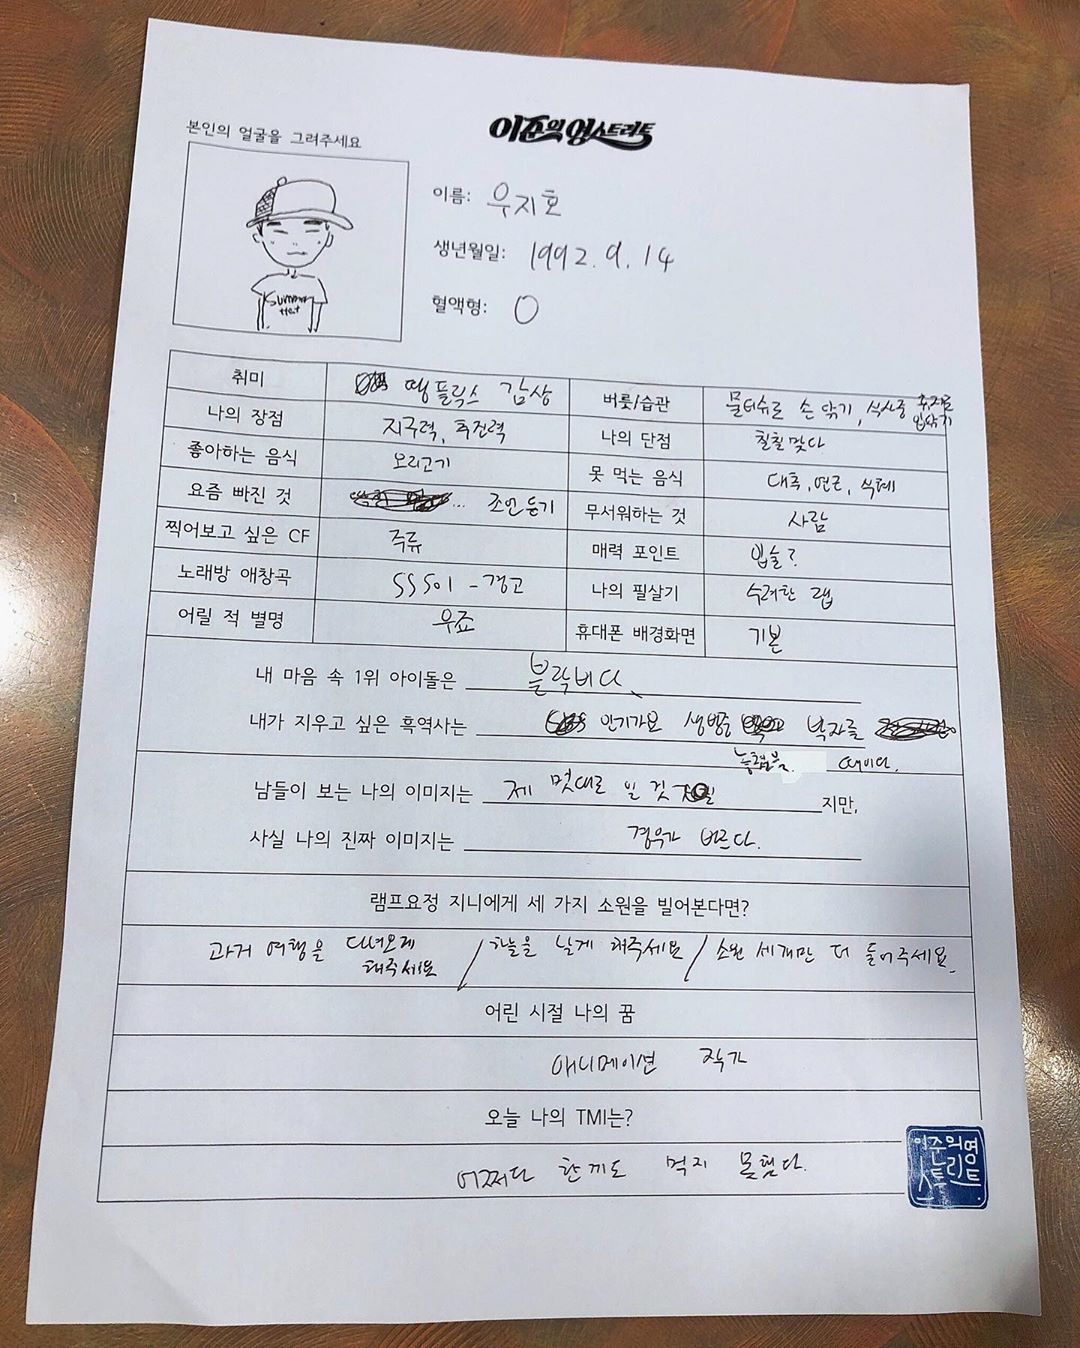 이준의 영스트리트
본인의 얼굴을 그려주세요
Summer
Hat
이름: 우지호
생년월일: 1992.9.14
혈액형: O
취미 땡플릭스 감상 버릇/습관 물티슈로 손 닦기, 식사중 휴지로 입닦기
나의 장점 지구력, 추진력 나의 단점 칠칠맞다
좋아하는 음식 오리고기 못 먹는 음식 대추, 연근, 식혜
요즘 빠진 것 ... 조언 듣기 무서워하는 것 사람
찍어보고 싶은 CF 주류 매력 포인트 입술?
노래방 애창곡 SS501 - 경고 나의 필살기 수려한 랩
어릴 적 별명 우죠 휴대폰 배경화면 기본
내 마음 속 1위 아이돌은 블락비다.
내가 지우고 싶은 흑역사는 인기가요 생방중 박자를
놓쳤음. 때이다.
남들이 보는 나의 이미지는 제 멋대로 일 것 지만,
사실 나의 진짜 이미지는 경우가 바르다.
램프요정 지니에게 세 가지 소원을 빌어본다면?
과거 여행을 다녀오게 해주세요 / 하늘을 날게 해주세요 / 소원 세개만 더 들어주세요.
어린 시절 나의 꿈
애니메이션 작가
오늘 나의 TMI는?
어쩌다 한끼도 먹지 못했다.
이준의 영스트리트